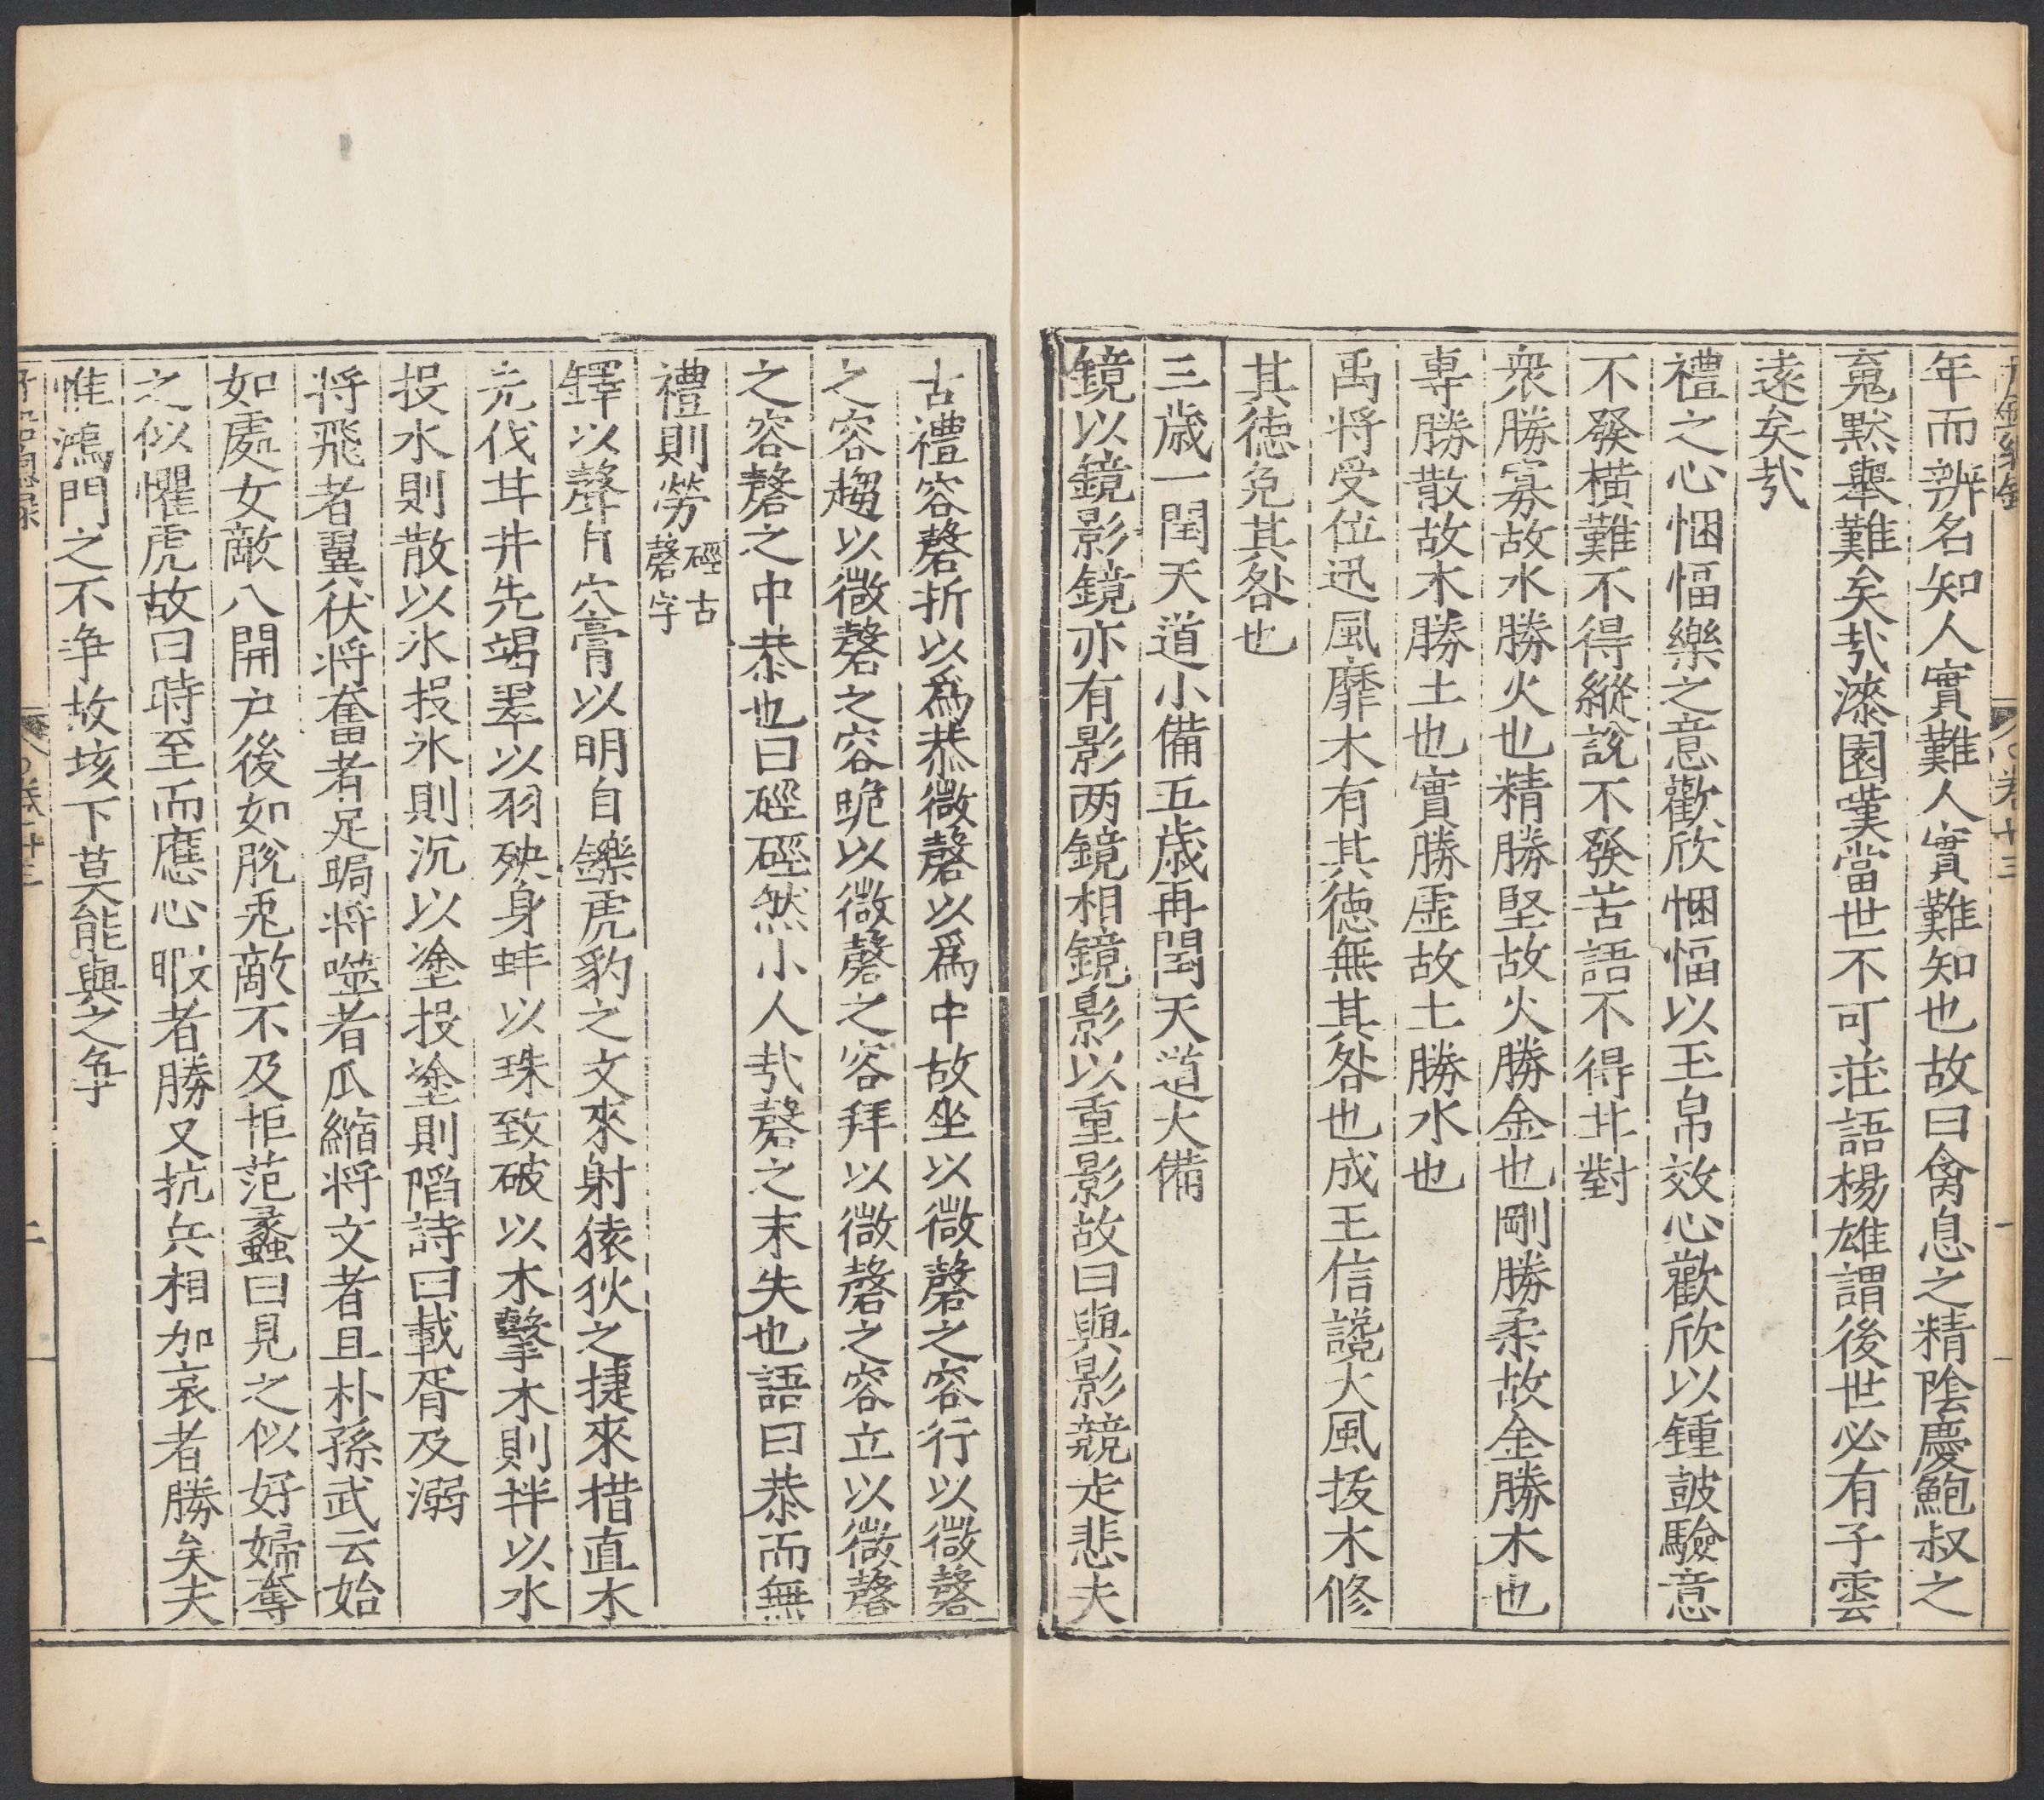 年而辨名知人實難人實難知也故曰禽息之精陰慶鮑叔之
䰟黙舉難矣㢤漆園嘆當世不可莊語楊雄謂後世必有子雲
遠矣㢤
禮之心悃愊樂之意歡欣悃愊以玉帛效心歡欣以鍾鼓驗意
不發橫難不得縱說不發苦語不得甘對
衆勝寡故水勝火也精勝堅故火勝金也剛勝柔故金勝木也
專勝散故木勝土也實勝虛故土勝水也
禹將受位迅風靡木有其德無其咎也成王信讒大風拔木修
其德免其咎也
三歲一閏天道小備五歲再閏天道大備
鏡以鏡影鏡亦有影两鏡相鏡影以重影故曰與影競走悲夫
卷十三
古禮容磬折以爲恭微磬以爲中故坐以微磬之容行以微磬
之容趨以微磬之容跪以微磬之容拜以微磬之容立以微磬
之容磬之中恭也曰硜硜然小人㢤磬之末失也語曰恭而無
禮則勞硜古磬字
鐸以聲自穴膏以明自鑠虎豹之文來射猿狄之捷來措直木
先伐甘井先竭翠以羽殃身蚌以珠致破以木擊木則拌以水
投水則散以氷投氷則沉以塗投塗則陷詩曰載胥及溺
将飛者翼伏将奮者足跼将噬者爪縮将文者且朴孫武云始
如處女敵人開戸後如脫兎敵不及拒范蠡曰見之似好婦奪
之似懼虎故曰時至而應心暇者勝又抗兵相加哀者勝矣夫
惟鴻門之不争故垓下莫能與之争